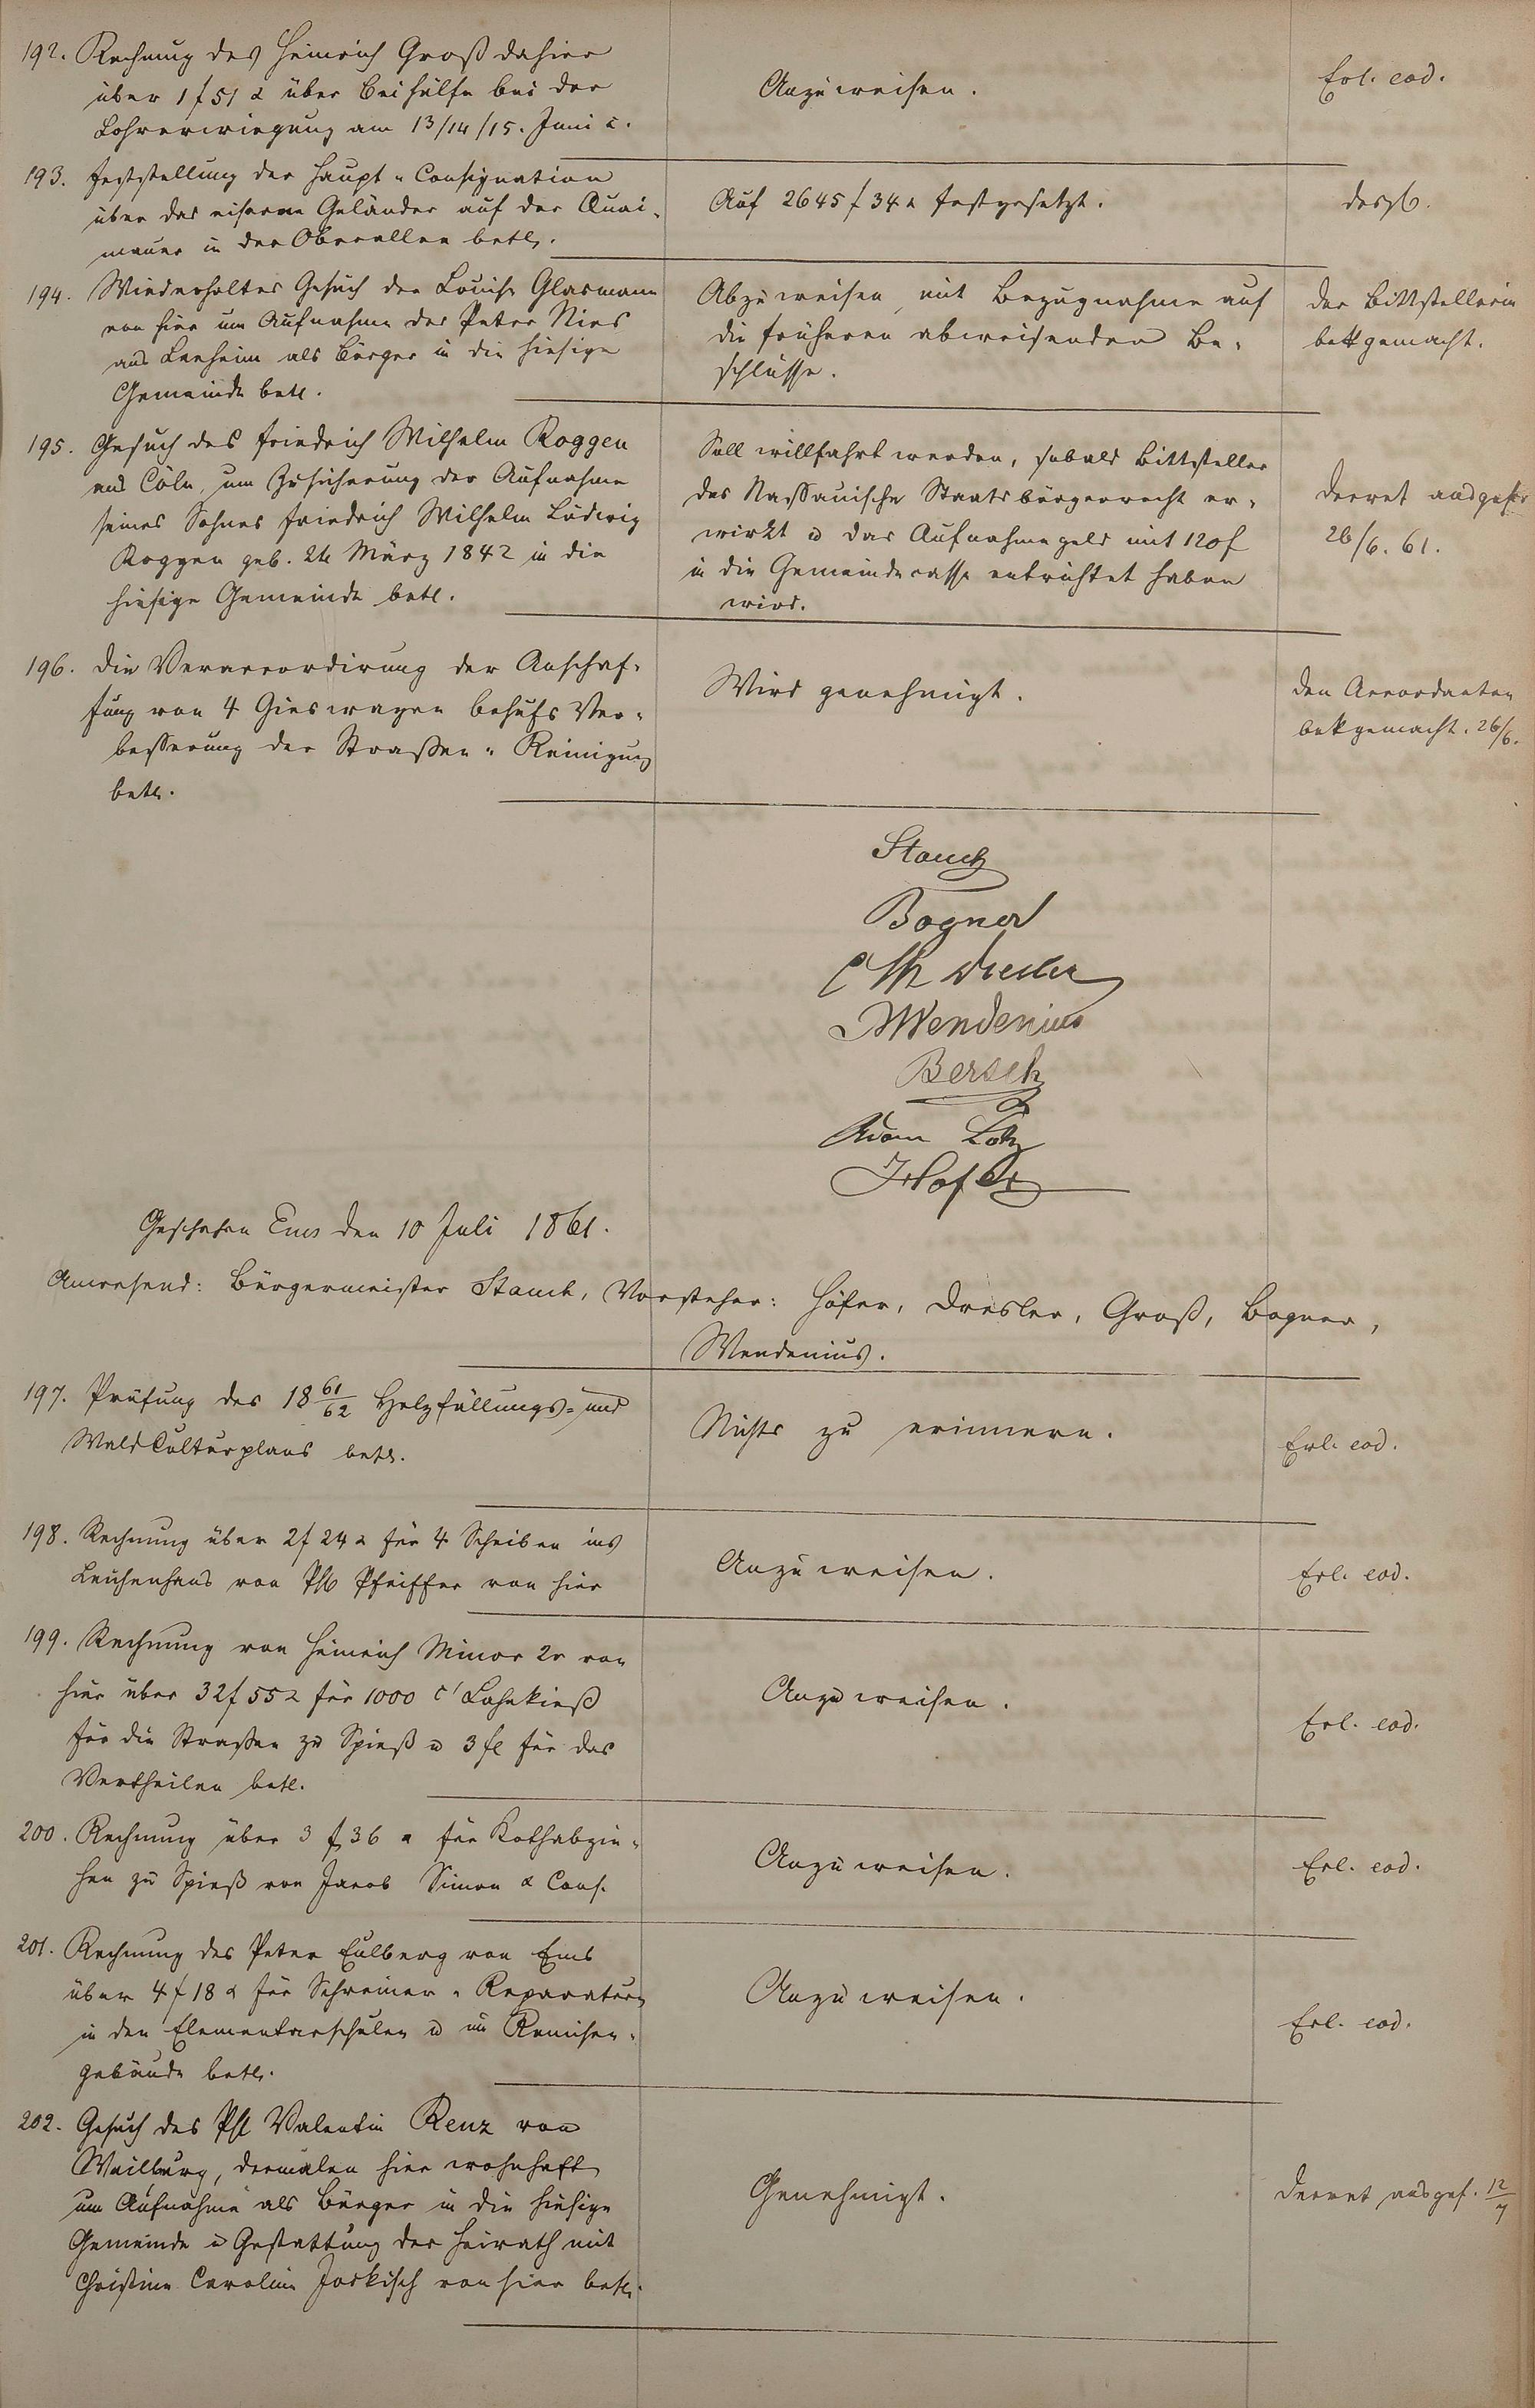 192. Rechnung des Heinrich Groß dahier
über 1 f 51 x über Beihülfe bei der
Lohrerwiegung am 13/14/15. Juni c.
Anzuweisen.
Erl. eod.
193. Feststellung der Haupt-Consignation
über das eiserne Geländer auf der Quai-
mauer in der Oberallee betr.
Auf 2645 f 34 x festgesetzt.
desgl.
194. Wiederholtes Gesuch der Louise Glasmann
von hier um Aufnahme des Peter Nies
aus Leeheim als Bürger in die hiesige
Gemeinde betr.
Abzuweisen, mit Bezugnahme auf
die früheren abweisenden Be-
schlüsse.
Der Bittstellerin
bektgemacht.
195. Gesuch des Friedrich Wilhelm Roggen
aus Cöln, um Zusicherung der Aufnahme
seines Sohnes Friedrich Wilhelm Ludwig
Roggen geb. 24 März 1842 in die
hiesige Gemeinde betr.
Soll willfahrt werden, sobald Bittsteller
das Nassauische Staatsbürgerrecht er-
wirkt u das Aufnahmegeld mit 120 f
in die Gemeindecasse entrichtet haben
wird.
Decret ausgef.
26/6. 61.
196. Die Veraccordirung der Anschaf-
fung von 4 Gieswagen behufs Ver-
besserung der Straßen-Reinigung
betr.
Wird genehmigt.
Den Accordanten
bektgemacht. 26/6.
Stauch
Bogner
Dresler
Wendenius
Bersch
Adam Lotz
Höfer
Geschehen Ems den 10 Juli 1861.
Anwesend: Bürgermeister Stauch, Vorsteher: Höfer, Dresler, Groß, Bogner,
Wendenius.
197. Prüfung des 18 61/62 Holzfällungs- und
Waldculturplans betr.
Nichts zu erinnern.
Erl. eod.
198. Rechnung über 2 f 24 x für 4 Scheiben ins
Leichenhaus von Ph Pfeiffer von hier
Anzuweisen.
Erl. eod.
199. Rechnung von Heinrich Minor 2r von
hier über 32 f 55 x für 1000 c' Lahnkieß
für die Straßen zu Spieß u 3 fl für das
Vertheilen betr.
Anzuweisen.
Erl. eod.
200. Rechnung über 3 f 36 x für Kothabzie-
hen zu Spieß von Jacob Simon & Cons.
Anzuweisen.
Erl. eod.
201. Rechnung des Peter Eulberg von Ems
über 4 f 18 x für Schreiner-Reparaturen
in den Elementarschulen u im Remisen-
gebäude betr.
Anzuweisen.
Erl. eod.
202. Gesuch des Phl Valentin Renz von
Weilburg, dermalen hier wohnhaft
um Aufnahme als Bürger in die hiesige
Gemeinde u Gestattung der Heirath mit
Christine Caroline Jockisch von hier betr.
Genehmigt.
Decret ausgef. 12/7